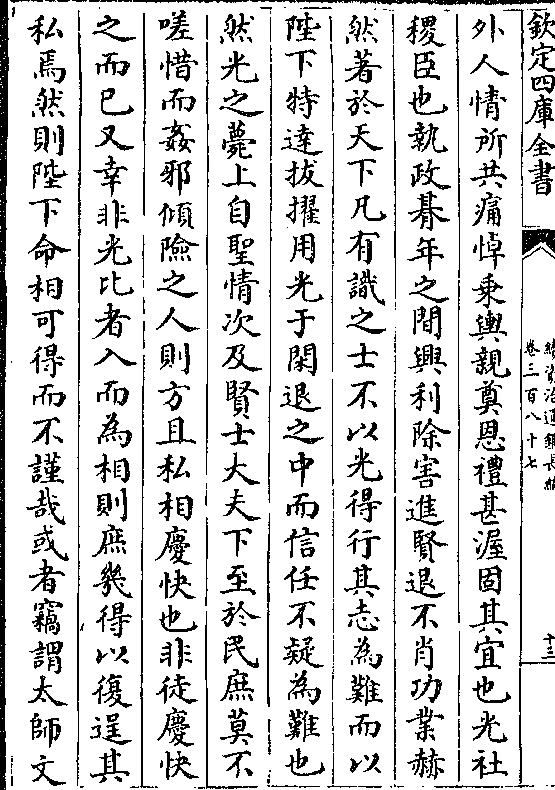 欽定四庫全書
續資治通鑑長編
卷三百八十七
十三
外人情所共痛悼乗輿親奠恩禮甚渥固其宜也光社
稷臣也執政朞年之間興利除害進賢退不肖功業赫
然著於天下凡有識之士不以光得行其志為難而以
陛下特達拔擢用光于閑退之中而信任不疑為難也
然光之薨上自聖情次及賢士大夫下至於民庶莫不
嗟惜而姦邪傾險之人則方且私相慶快也非徒慶快
之而已又幸非光比者入而為相則庶幾得以復逞其
私焉然則陛下命相可得而不謹哉或者竊謂太師文